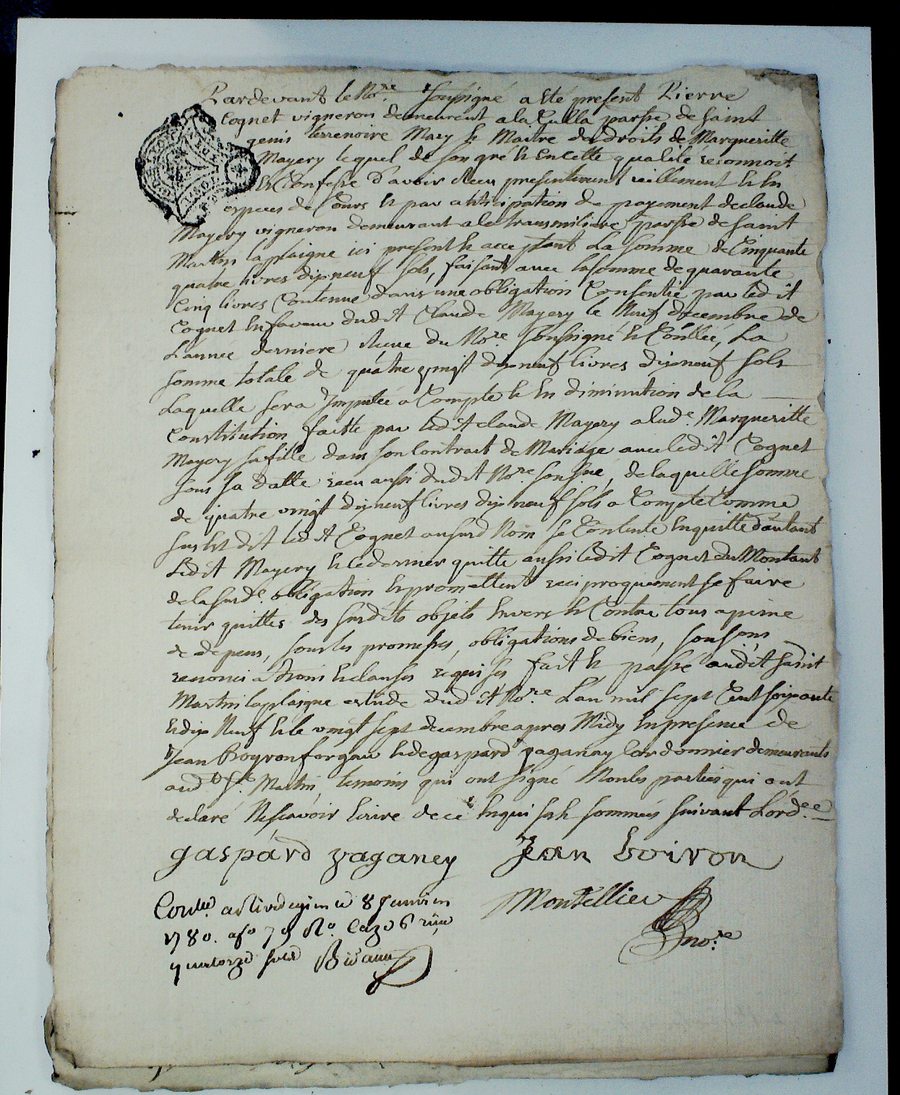 Pardevant le No.re soussigné a été present Pierre
Cognet vigneron demeurent a la Calla parsse de saint
genis terrenoire Mary & Maitre des droits de Margueritte
Mayery lequel de son gré & en cette qualité reconnoit
et Confesse d'avoir Receu presentement reellement & en
especes de Cours & par anticipation de payement declaude
Mayery vigneron demeurant a la transmiliere parsse de saint
Martin laplaigne ici present & acceptant La somme de Cinquante
quatre livres dixneuf sols, faisant avec la somme de quarante
Cinq livres Contenue dans une obligation Consentie par ledit
Cognet en faveur dudit Claude Mayery le Neuf décembre de
L'année derniere Receue du No.re soussigné & Conllée, La
somme totale de quatre vingt dixneuf livres dixneuf sols
Laquelle sera Imputée a Compte & En diminution de la
Constitution faitte par ledit claude Mayery a lad.e Margueritte
Mayery sa fille dans son Contrat de Mariage avec ledit Cognet
sous sa datte receu aussi dudit No.re sousne, de laquelle somme
de quatre vingt dixneuf livres dixneuf sols a Compte Comme
sus est dit ledit Cognet ausurd Nom se Contente En quitte d'autant
Ledit Mayery & ce dernier quitte aussi ledit Cognet du Montant
de la surd.e obligation & promettent reciproquement se faire
tenir quittes des surdits objets Envers & Contre tous a peine
de depens, sous les promesses, obligations de biens, sousons,
renonciations & clauses requises fait & passé audit saint
Martin laplaigne estude dudit No.re L'an mil sept Cent soixante
& dix Neuf & le vingt sept decembre apres Midy En presence de
Jean Boyron forgeur & de gaspard zaganay Cordonnier demeurants
aud St. Martin temoins qui ont signé Non les parties qui ont
declaré Ne scavoir Ecrire de ce Enquis & sommés suivant L'ord.ce
gaspard zaganey Jean boiron
Montellier
no.re
Conllé a Rivedegier le 8 Janvier
1780. a fo 79 Ro. Caze 6 reçu
quatorze sols